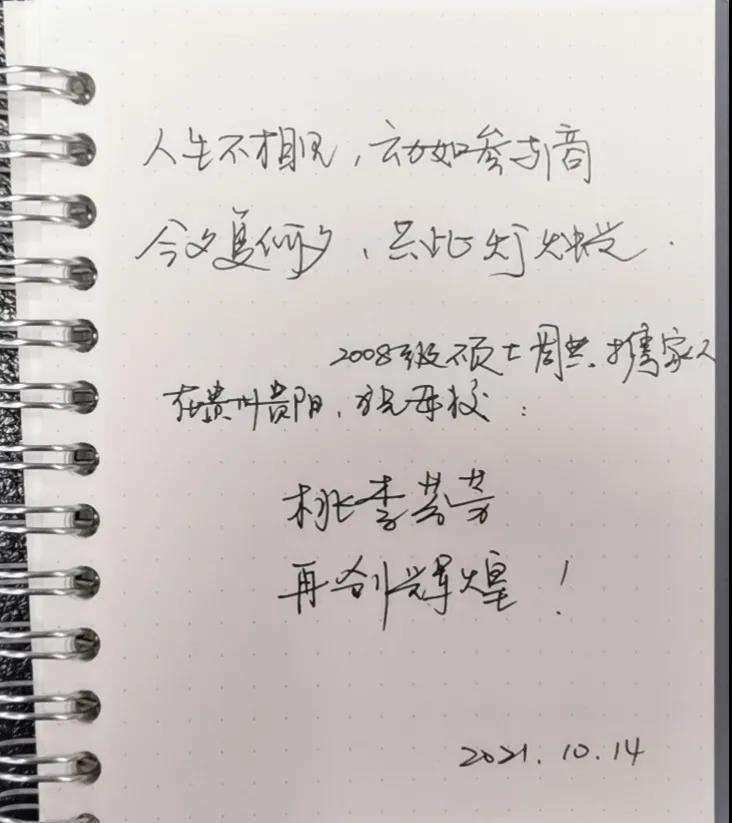 人生不相见，动如参与商
今夕复何夕，共此灯烛光.
2008级硕士周洪携家人
在贵州贵阳，祝母校：
桃李芬芳
再创辉煌！
2021.10.14